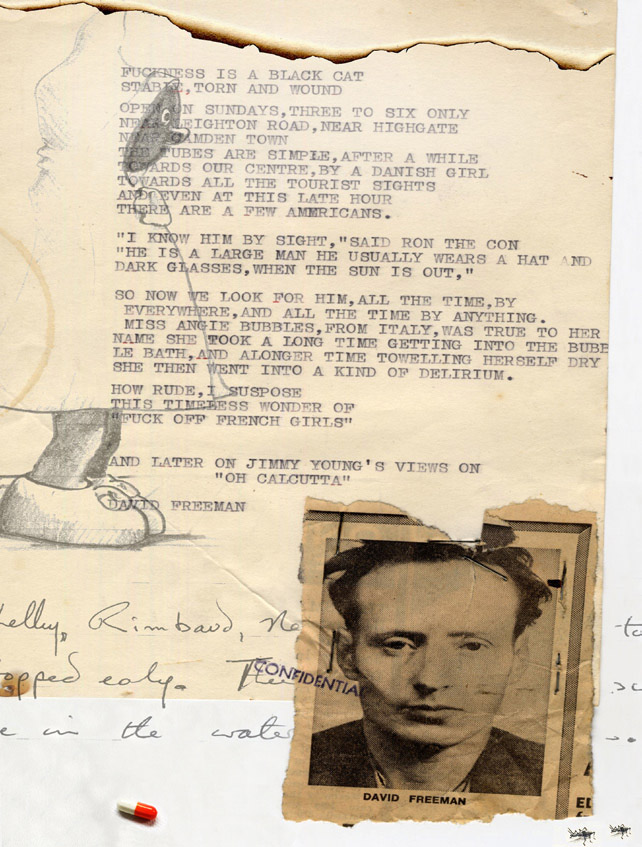 FUCKNESS IS A BLACK CAT
STABLE,TORN AND WOUND
OPEN ON SUNDAYS,THREE TO SIX ONLY
NEAR LEIGHTON ROAD,NEAR HIGHGATE
NEAR CAMDEN TOWN
THE TUBES ARE SIMPLE,AFTER A WHILE
TOWARDS OUR CENTRE,BY A DANISH GIRL
TOWARDS ALL THE TOURIST SIGHTS
AND EVEN AT THIS LATE HOUR
THERE ARE A FEW AMMRICANS.
"I KNOW HIM BY SIGHT,"SAID RON THE CON
"HE IS A LARGE MAN HE USUALLY WEARS A HAT AND
DARK GLASSES,WHEN THE SUN IS OUT,"
SO NOW WE LOOK FOR HIM,ALL THE TIME,BY
EVERYWHERE,AND ALL THE TIME BY ANYTHING.
MISS ANGIE BUBBLES,FROM ITALY,WAS TRUE TO HER
NAME SHE TOOK A LONG TIME GETTING INTO THE BUBB
LE BATH,AND ALONGER TIME TOWELLING HERSELF DRY
SHE THEN WENT INTO A KIND OF DELIRIUM.
HOW RUDE,I SUSPOSE
THIS TIMELESS WONDER OF
"FUCK OFF FRENCH GIRLS"
AND LATER ON JIMMY YOUNG'S VIEWS ON
"OH CALCUTTA"
DAVID FREEMAN
helly, Rimbaud,
opped ealy.
CONFIDENTIAL
e in the water
DAVID FREEMAN